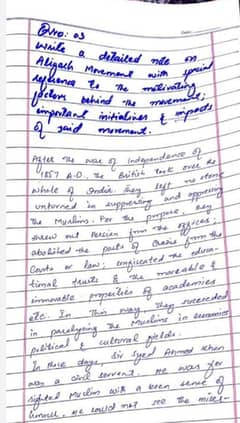 Q. no: 03
write a detailed note on
Aligarh Movement with special
reference to the motivating
factors behind the movement,
important initiatives & impacts
of said movement.
After the war of Independence of
1857 A.D., the British took over the
whole of India. They left no stone
unturned in suppressing and oppressing
the Muslims. For the purpose, they
threw out Persian from the offices;
abolished the posts of Qazis from the
Courts or law; confiscated the educa-
tional trusts & the moveable &
immovable properties of academies
etc. In this way, they succeeded
in paralysing the Muslims in economics
political & cultural fields.
In those days Sir Syed Ahmed Khan
was a civil servant. He was far
sighted Muslim with a keen sense of
humour. He could not see the miser-